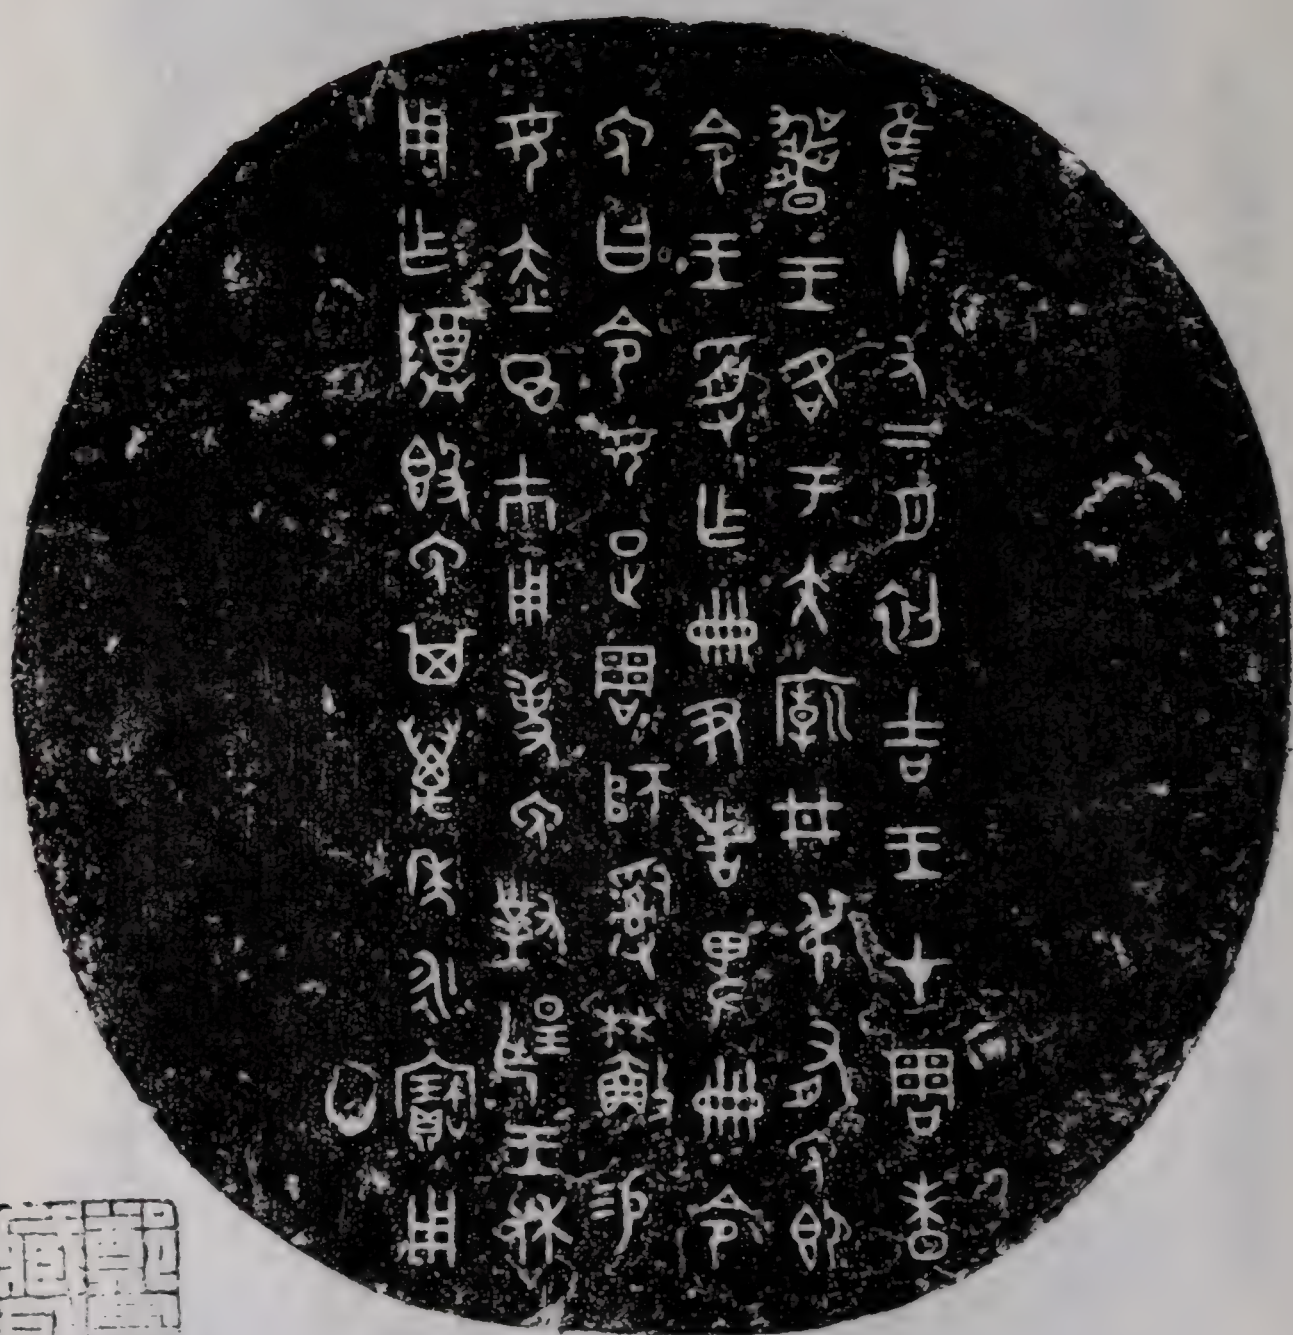 隹十又二月初吉王才周昧
爽王各于大廟井叔有免即
令王受乍冊尹者卑冊令
免曰令女疋周師𤔲𣙙易
女赤巿用事免對揚王休
用乍尊𣪘免其萬年永寶用